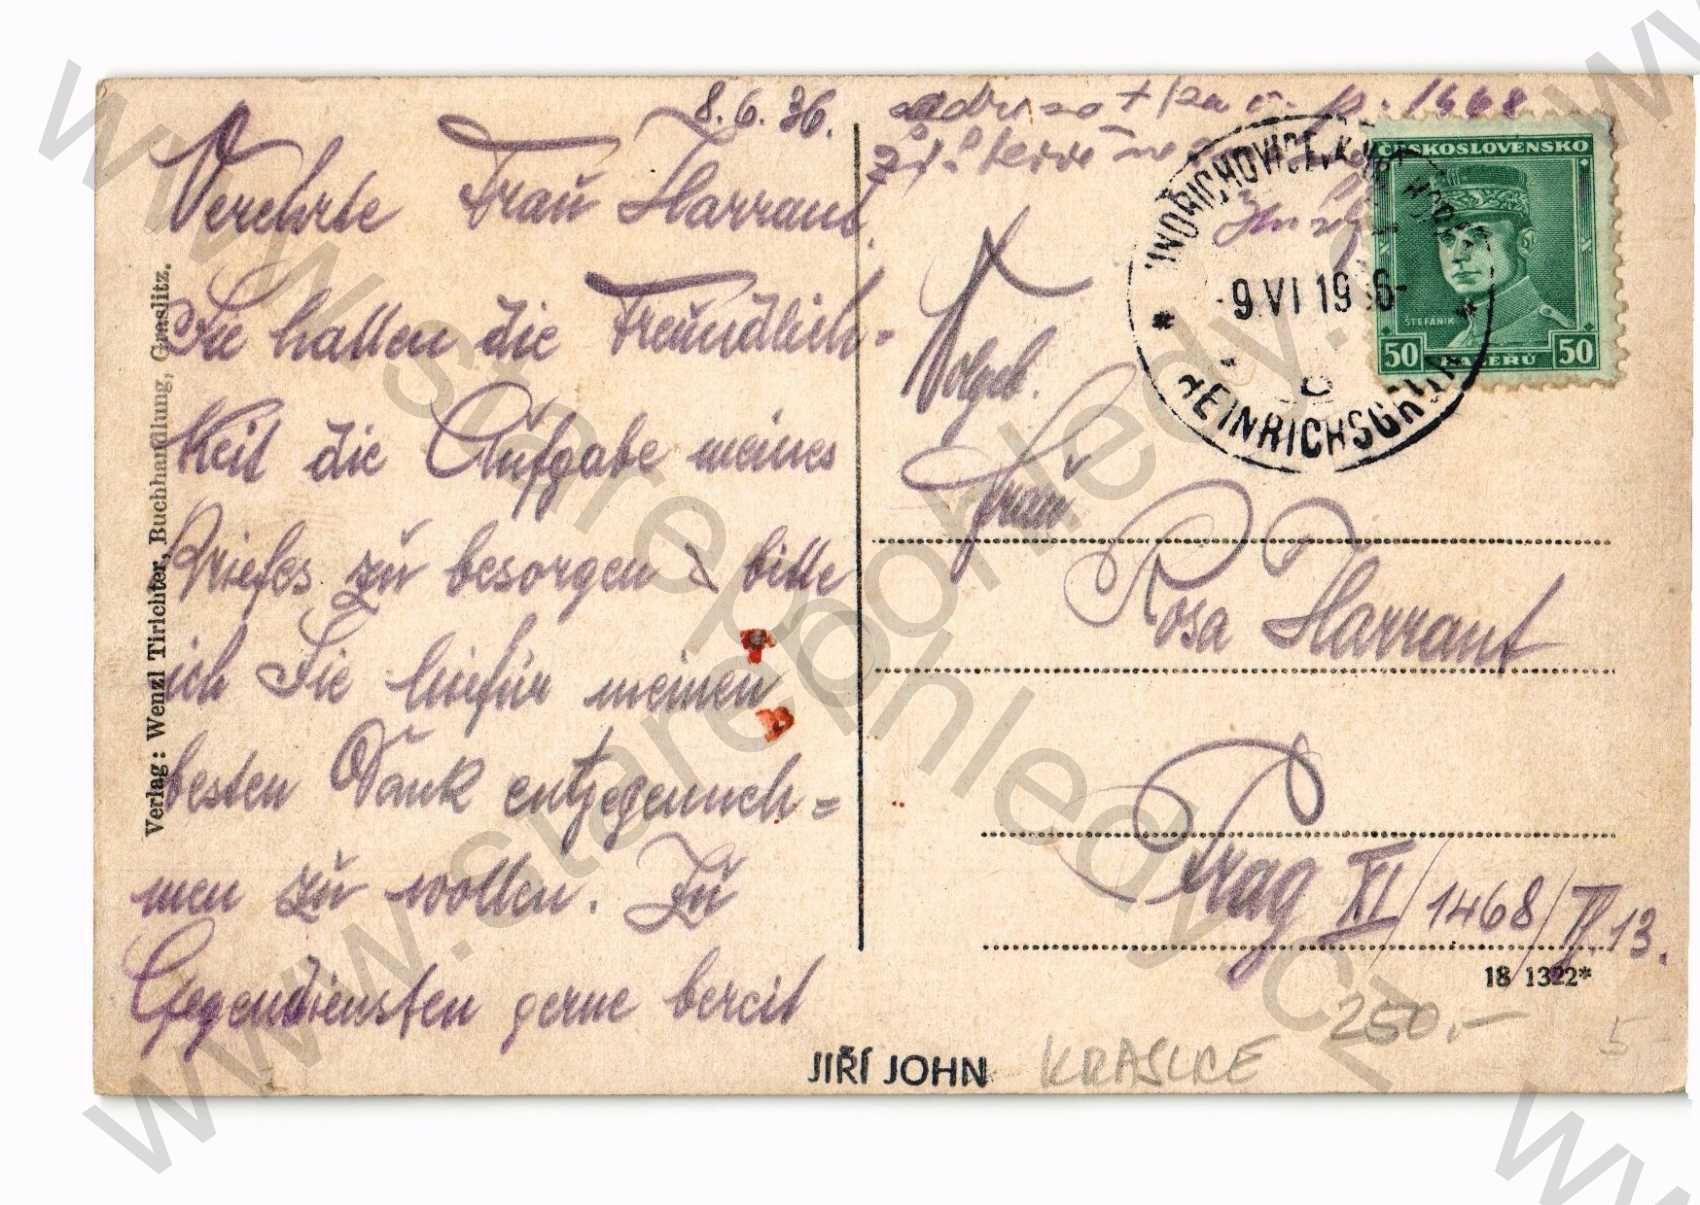 8. 6. 36.
Verehrte Frau Harrant.
Sie hatten die Freundlich=
keit die Aufgabe meines
Briefes zu besorgen & bitte
ich Sie hiefür meinen
besten Dank entgegenneh=
men zu wollen. Zu
Gegendiensten gerne bereit
Verlag: Wenzl Tirichter, Buchhandlung, Graslitz.
1468
JINDŘICHOVICE, KRUŠ. HORY
-9.VI 1936-
HEINRICHSGRÜN
ČESKOSLOVENSKO
ŠTEFÁNIK
50 HALÉŘŮ 50
Wolgeb.
Frau
Rosa Harrant
Prag XI/1468/II 13.
18 1322*
250.-
5-
JIŘÍ JOHN
KRASLICE
www.starepohledy.cz
www.starepohledy.cz